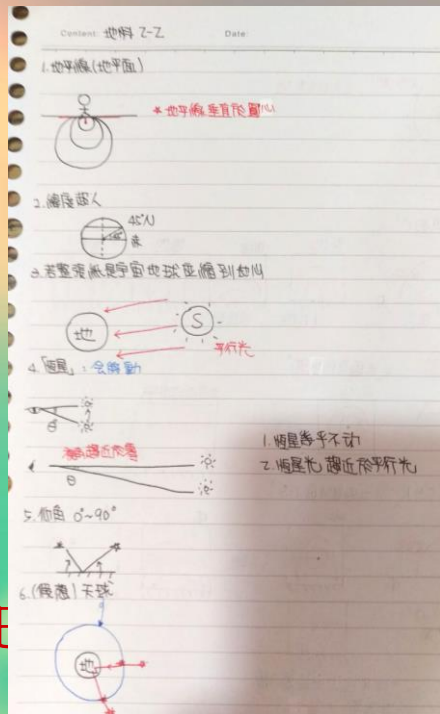 Content: 地科 2-2 Date:
1. 地平線(地平面)
* 地平線垂直於圓心
2. 緯度超人
45°N
赤
3. 若整張紙是宇宙 地球並縮到地心
地
S
平行光
4.「恆星」: 会移動
θ
趨近於零
θ
1. 恆星幾乎不动
2. 恆星光 趨近於平行光
5. 仰角 0°~90°
6. (假想) 天球
地